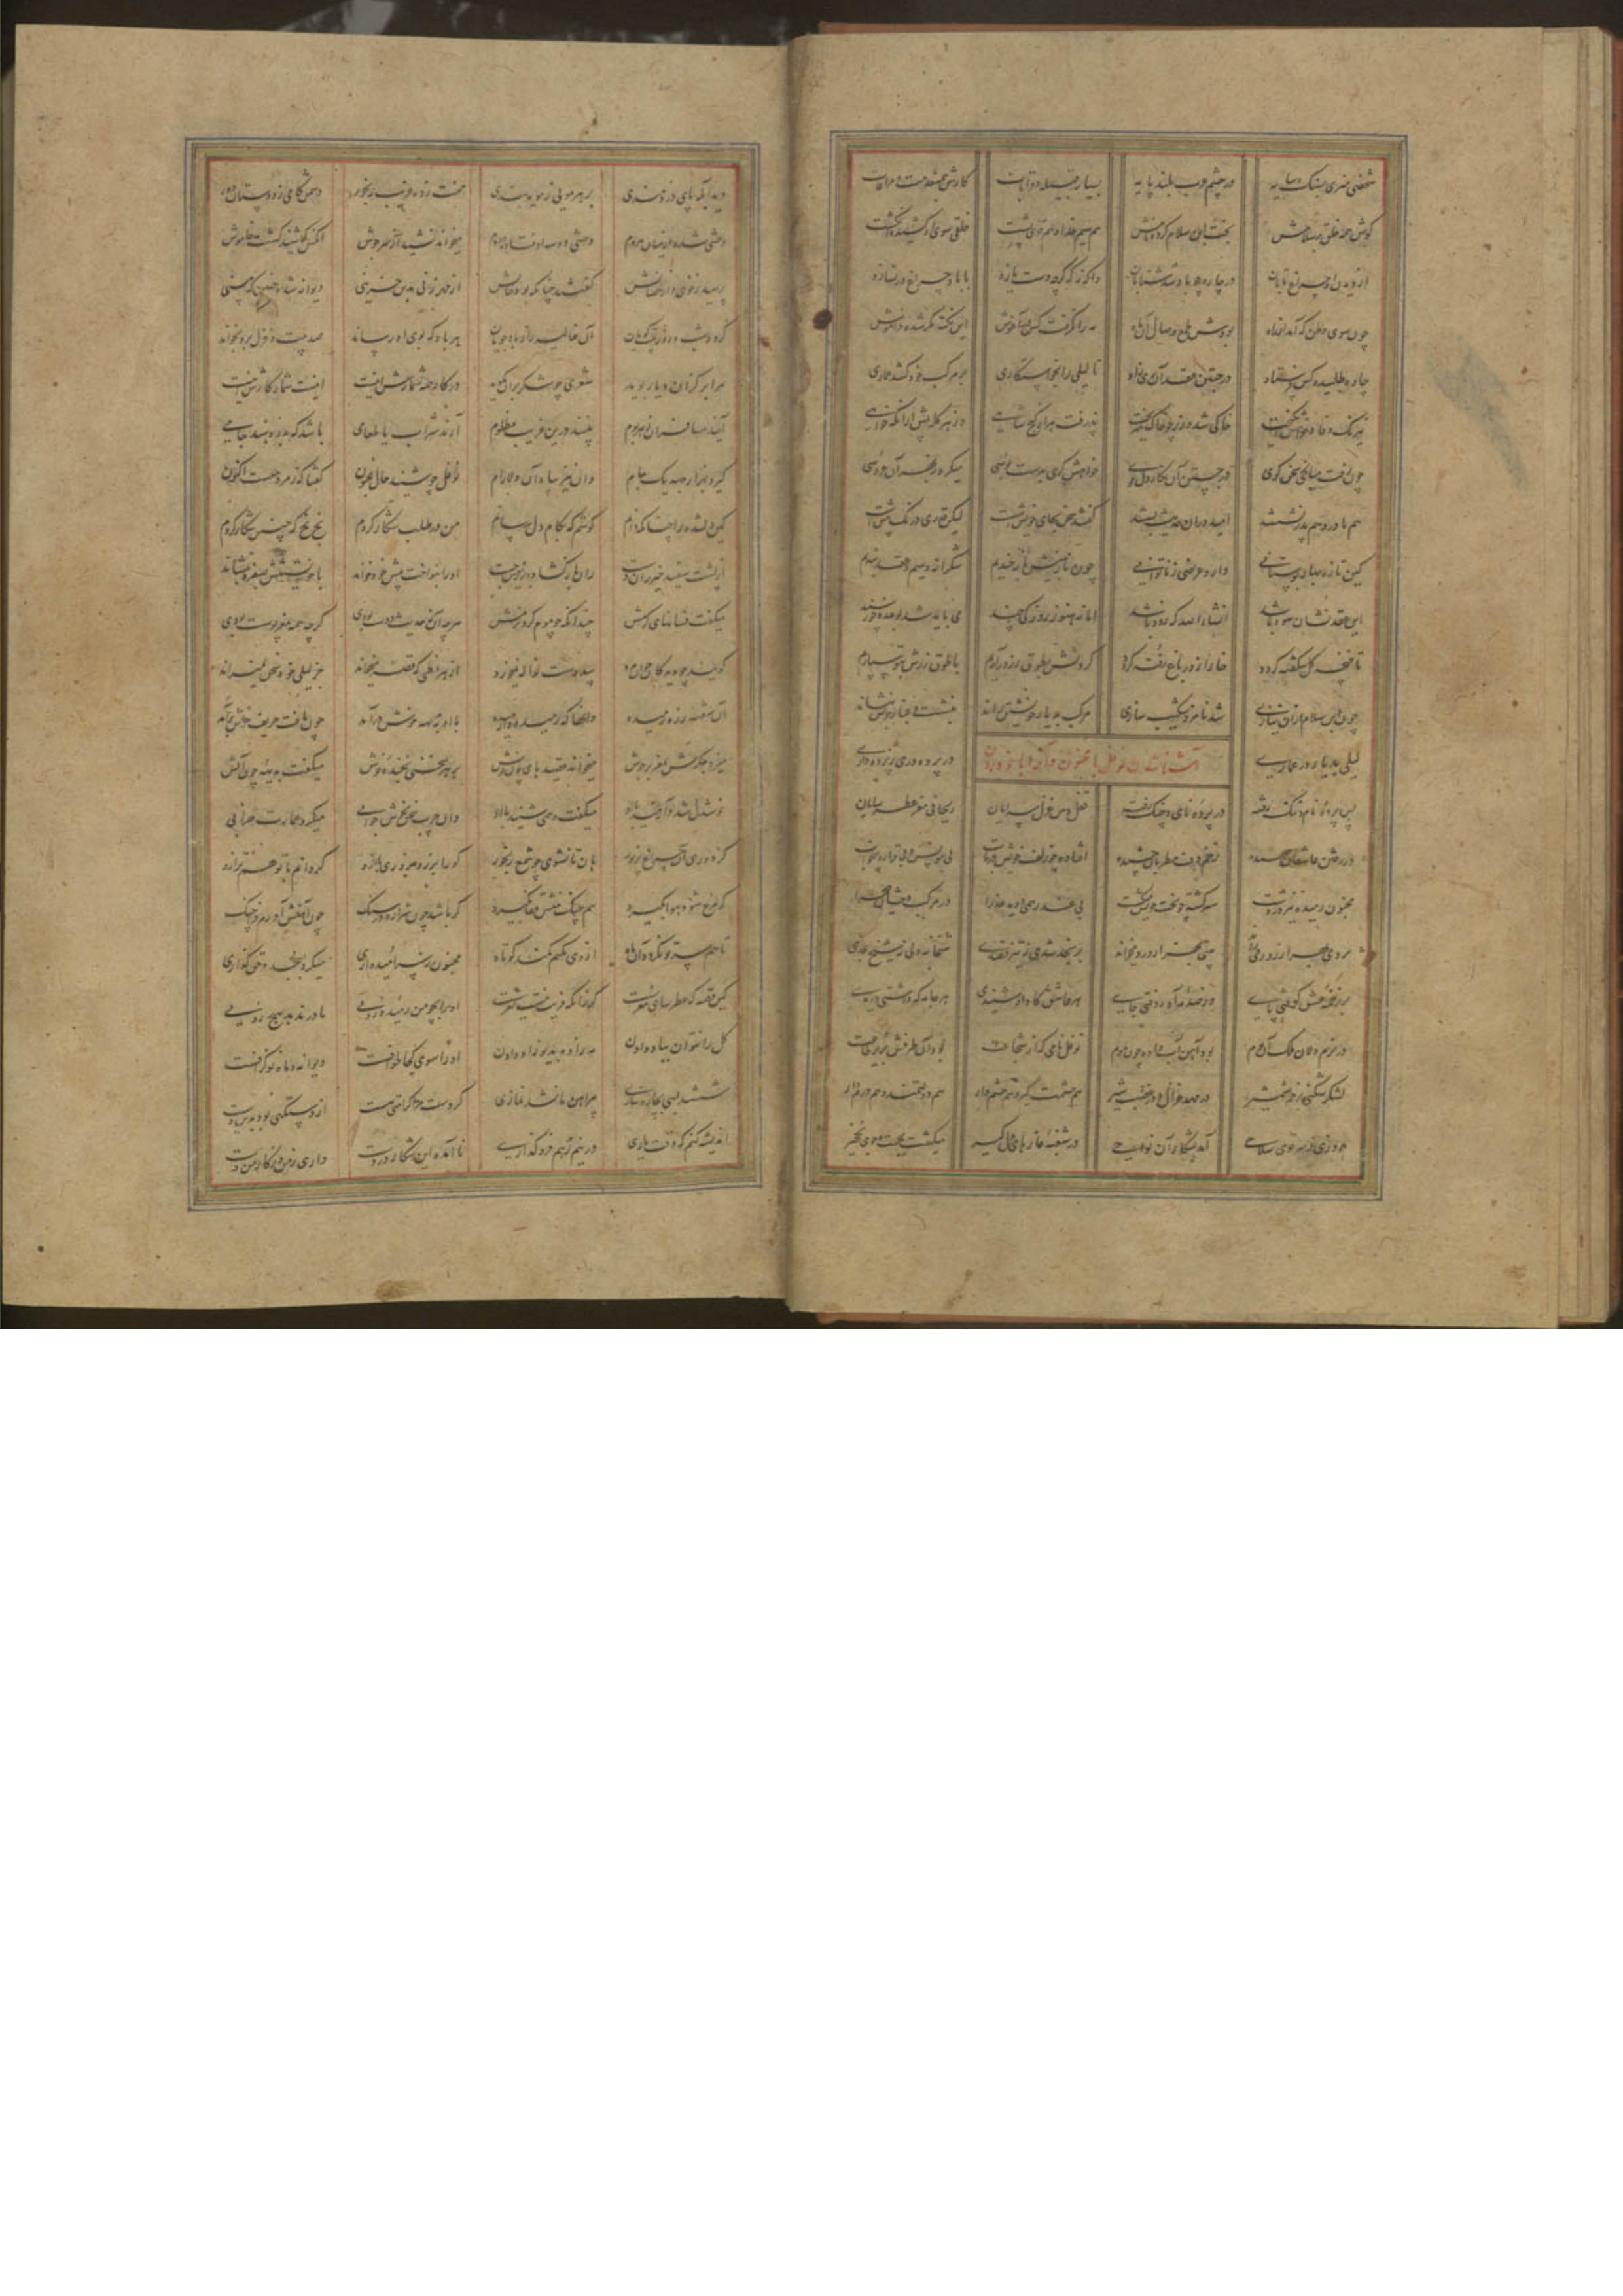 شخصی هنری بسنگ و سایه در چشم عرب بلند پایه بسیار قبیله و قرابات کارش همه خدمت و مراعات
گوش همه خلق بر سلامش بخت ابن سلام کرده نامش هم سیم خدا و هم قوی پشت خلقی سوی او کشیده انگشت
از دیدن آن چراغ تابان در چاره چو باد شد شتابان واگه نه که گرچه دست یازد با باد چراغ در نسازد
چون سوی وطن گه آمد از راه بودش طمع وصال آن ماه مه را نگرفت کس در آغوش این نکته مگر شدش فراموش
چاره طلبید و کس فرستاد در جستن عقد آن پریزاد تا لیلی را بخواستگاری در موکب خود کشد عماری
نیرنگ نمود و خواهش انگیخت خاکی شد و زر چو خاک میریخت پذرفت هزار گنج شاهی وز هر گله پیش از آنکه خواهی
چون رفت میانجی سخن گوی در جستن آن نگار دلجوی خواهش گری بدست بوسی میکرد ز بهر آن عروسی
هم مادر و هم پدر نشستند امید در آن حدیث بستند گفتند سخن بجای خویشست لیکن قدری درنگ پیشست
کین تازه بهار بوستانی دارد عرضی ز ناتوانی چون ما ز بهیش باز خندیم شکرانه دهیم و عقد بندیم
این عقد نشان سود باشد انشاءالله که زود باشد اما نه هنوز روزکی چند می باید شد بوعده خرسند
تا غنچه گل شکفته گردد خار از در باغ رفته گردد گردنش بطوق زر درآرم با طوق زرش بتو سپارم
چون ابن سلام از آن نیازی شد نامزد شکیب سازی مرکب بدیار خویشتن راند بنشست و غبار خویش بنشاند
لیلی در عماری در پرده دری ز پرده داری
آشنا شدن نوفل با مجنون
پس پرده نام و ننگ رفته در پرده نای و چنگ رفته نقل دهن غزل سرایان ریحانی مغز عطر سایان
در عاشقان زخم دف مطربان چشیده افتاده چو زلف خویش در تاب بی مونس و بی قرار و بی خواب
مجنون رمیده نیز در دشت سرگشته چو بخت خویش میگشت بی عذر همی دوید عذرا در موکب وحشیان صحرا
بیتی بهزار درد میخواند بر نجد شدی شیخ نجدی
بر زخمه عشق کوفتی پای هر عاشق کاه او شنیدی هر جامه که داشتی دریدی
در نرم دلان ملک آن بوم بود آهن آب داده چون موم نوفل نامی که از شجاعت بود آن طرفش بزیر طاعت
لشکر شکنی بزخم شمشیر در مهر غزال و در غضب شیر هم حشمت گیر و هم حشم دار هم دولتمند و هم درم دار
روزی ز سر قوی سلاحی آمد بشکار آن نواحی در شغبه غارهای دلگیر میگشت بجست و جوی نخجیر
دید آبله پای دردمندی بر هر مویی ز مویه بندی محنت زده غریب رنجور دشمن کامی ز دوستان دور
وحشی شده از میان مردم وحشی دو سه اوفتاده در دم میخواند نشید از سر جوش آنکس که شنید گشت خاموش
پرسید ز خوی و از خصالش گفتند چنانکه بود حالش از مهر زنی بدین حزینی دیوانه شد اینچنین که بینی
گردد شب و روز بیت گویان آن غالیه را ز باد جویان هر باد که بوی او رساند صد بیت و غزل برو بخواند
هر ابر کزان دیار پوید شعری چو شکر بر آن بگوید در کار همه شمارش اینست اینست شمار کارش اینست
آیند مسافران ز هر بوم بینند درین غریب مظلوم آرند شراب یا طعامی باشد که بدو دهند جامی
گیرد بهزار جهد یک جام وان نیز بیاد آن دلارام نوفل چو شنید حال مجنون گفتا که ز مردمیست اکنون
کین دلشده را چنانکه دانم کوشم که بکام دل رسانم من در طلب شکار کردم بخ بخ که چنین شکار کردم
از پشت سمند خیزران دست ران باز گشاد و بر زمین جست او را بنواخت پیش خود خواند با خویشتنش بسفره بنشاند
میگفت فسانهای گرمش چندانکه چو موم کرد نرمش هر چه آن نه حدیث دوست بودی گرچه همه مغز پوست بودی
گوینده چو دید کان جوانمرد بی دوست نواله نمیخورد از هر نمطی که قصه میخواند جز لیلی خود سخن نمیراند
آن شیفته زره رمیده زانها که رمیده آرمیده با او به بدیهه خوش درآمد چون یافت حریف خوش برآمد
میزد جگرش ز مغز بر جوش میخواند قصیدهای چون نوش بر هر سخنی بخنده خوش میگفت بدیهه چون آتش
خوشدل شد و آرمید با او میگفت و همی شنید با او وان چرب سخن بخوش جوابی میکرد عمارت خرابی
کز دوری آن چراغ پر نور هان تا نشوی چو شمع رنجور کو را بزر و بزور بازو گردانم با تو هم ترازو
گر مرغ شود هوا بگیرد هم چنگ منش قفا بگیرد گر باشد چون شراره در سنگ چون آهنش آورم فراچنگ
تا همسر تو نگردد آن ماه از وی نکنم کمند کوتاه مجنون ز سر امیدواری میکرد بسجده حق گزاری
کین قصه که عطرسای مغزست گر زانکه فریب نیست نغزست او را بچو من رمیده رویی مادر ندهد بهیچ رویی
گل را نتوان بباد دادن مه زاده بدیو زاده دادن او را سوی ما کجا طوافست دیوانه و ماه نو گزافست
شستند بسی بچاره سازی پیراهن ما نشد نمازی گر دست مرا کرامتی هست از دستگهی بود بدین دست
اندیشه کنم که وقت یاری در نیم رهم فرو گذاری ناآمده این شکار در دست داری ز من و ز کار من دست